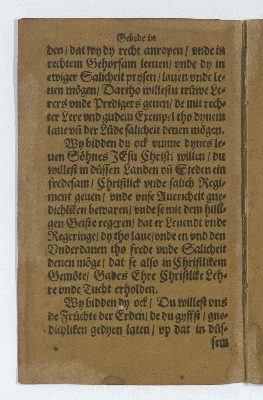 Gebede in
den/ dat wy dy recht anropen/ vnde in
rechtem Gehorsam leuen/ vnde dy in
ewiger Salicheit prysen/ lauen vnde le-
nen mögen/ Dartho willestu trüwe Le-
rers vnde Predigers geuen/ de mit rech-
ter Lere vnd gudem Exempel tho dynem
laue vñ der Lüde salicheit denen mögen.
Wy bidden dy ock vmme dynes le-
uen Söhnes JEsu Christi willen/ du
willest in düssen Landen vñ Steden ein
fredesam/ Christlick vnde salich Regi-
ment geuen/ vnde vnse Auericheit gne-
dichliken bewaren/ vnde se mit dem hilli-
gen Geiste regeren/ dat er Leuendt vnde
Regeringe/ dy tho laue/ vnde en vnd den
Vnderdanen tho frede vnde Salicheit
denen möge/ dat se also in Christlikem
Gemöte/ Gades Ehre Christlike Leh-
re vnde Tucht erholden.
Wy bidden dy ock/ Du willest vns
de Früchte der Erden/ de du gyffst/ gne-
dichliken gedyen laten/ vp dat in düs-
sem